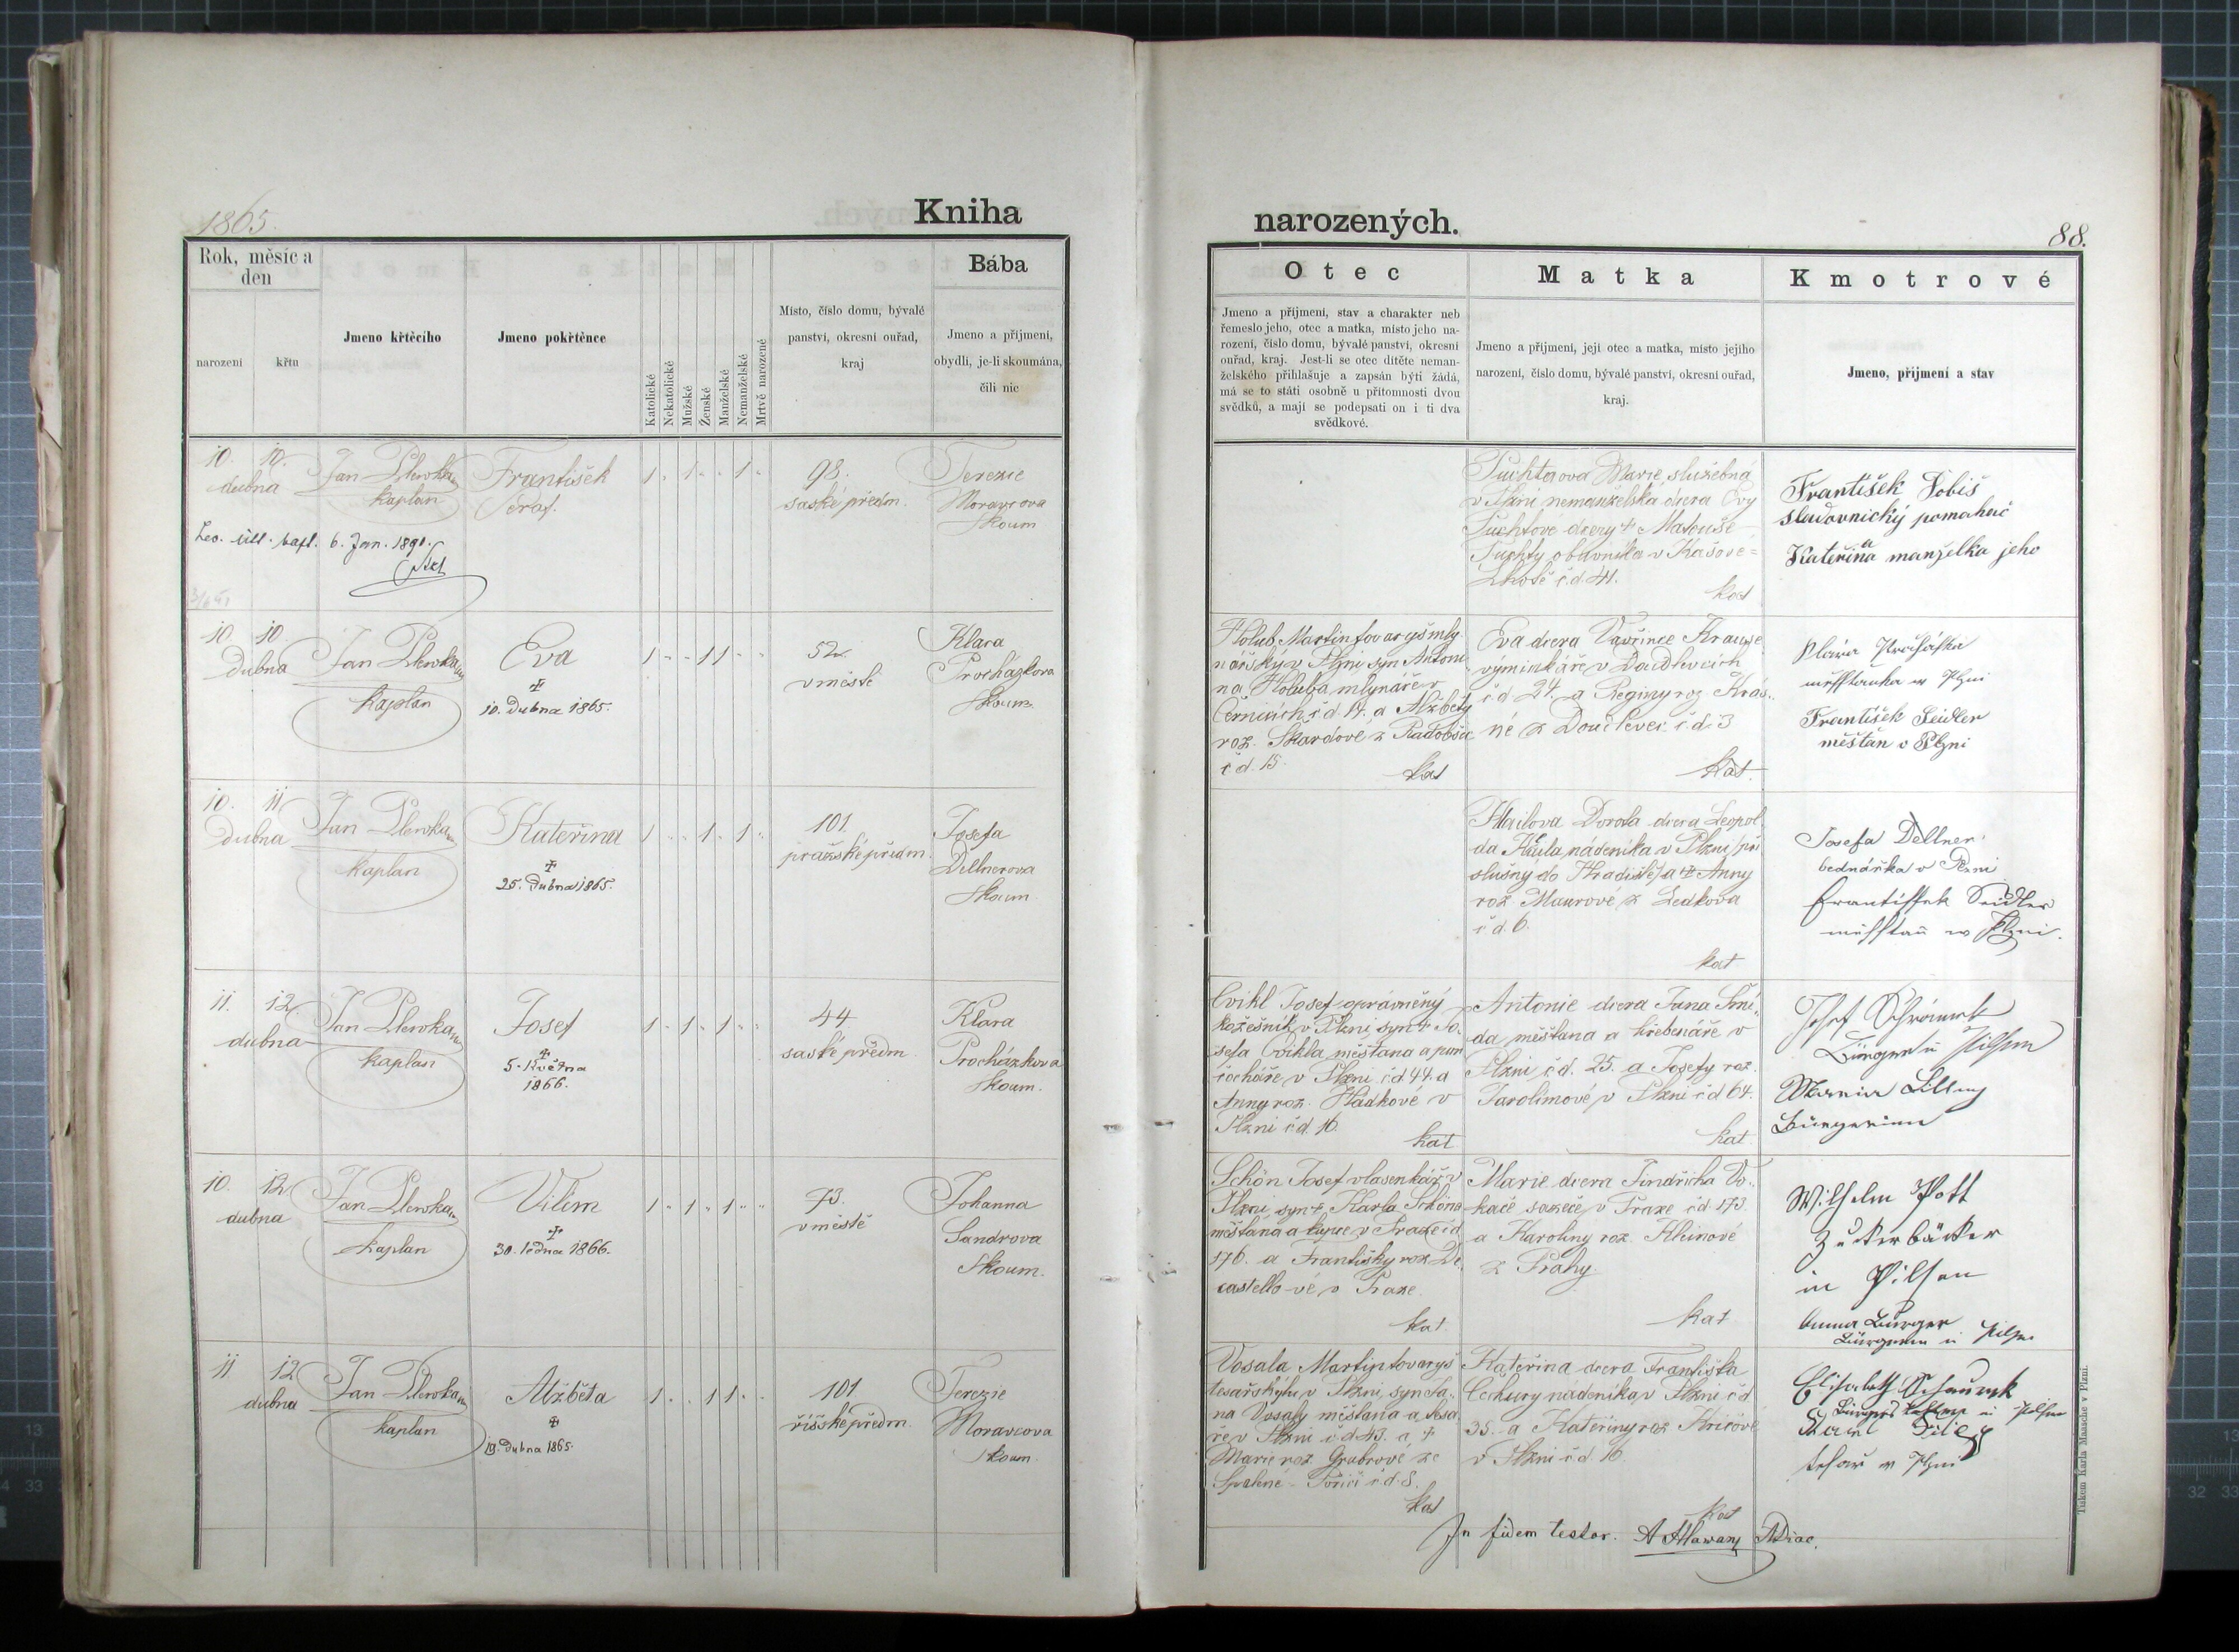 1865.
Kniha
narozených.
88.
Rok, měsíc a
den
narození
křtu
Jmeno křtěcího
Jmeno pokřtěnce
Katolické
Nekatolické
Mužské
Ženské
Manželské
Nemanželské
Mrtvě narozené
Místo, číslo domu, bývalé
panství, okresní ouřad,
kraj
Bába
Jmeno a přijmení,
obydlí, je-li skoumána,
čili nic
Otec
Jmeno a přijmení, stav a charakter neb
řemeslo jeho, otec a matka, místo jeho na-
rození, číslo domu, bývalé panství, okresní
ouřad, kraj. Jest-li se otec dítěte neman-
želského přihlašuje a zapsán býti žádá,
má se to státi osobně u přítomnosti dvou
svědků, a mají se podepsati on i ti dva
svědkové.
Matka
Jmeno a přijmení, její otec a matka, místo jejího
narození, číslo domu, bývalé panství, okresní ouřad,
kraj.
Kmotrové
Jmeno, přijmení a stav
10. 10.
dubna
Jan
kaplan
František
Seraf.
1 " 1 " " 1 "
98.
saské předm.
Terezie
Moravcova
skoum
bapt. 6. Jan. 1890.
Marie, služebná
v Plzni nemanželská dcera Evy
dcery + Matouše
v Kašové
Lhotě č.d. 41.
kat
František
pomahač
Kateřina manželka jeho
10. 10.
Dubna
Jan
kaplan
Eva
10. Dubna 1865.
1 " " 1 1 " "
52.
v městě
Klara
Procházkova
skoum.
Holub, Martin tovaryš mly-
nářský v Plzni, syn Antoni-
na Holuba mlynáře v
Černicích č.d. 14. a Alžběty
roz. Škardové z Radobčic
č.d. 15.
kat
Eva dcera Vavřince Krause
vyminkáře v Doudlevcích
č.d. 24. a Reginy roz. Krás-
né z Doudlevec č.d. 3
kat.
František Seidler
měštan v Plzni
10. 11
Dubna
Jan
kaplan
Kateřina
25. Dubna 1865.
1 " " 1 " 1 "
101.
pražské předm.
Josefa
Dellnerova
skoum
Dorota dcera Leopol-
da nádeníka v Plzni /pří
slušný do Hradiště/ a + Anny
roz. Maurové z Ledkova
č.d. 6.
kat
Josefa Dellner
bednářka v Plzni
Frantissek Seidler
11. 12.
dubna
Jan
kaplan
Josef
5. Května
1866.
1 " 1 " 1 " "
44
saské předm.
Klara
Procházkova
skoum.
Cvikl Josef oprávněný
kožešník v Plzni, syn + Jo-
sefa Cvikla měštana a pun-
čocháře v Plzni č.d. 44. a
Anny roz. Hládkové v
Plzni č.d. 16.
kat
Antonie dcera Jana Šmí-
da měštana a hřebenáře v
Plzni č.d. 25. a Josefy roz.
Jarolímové v Plzni č.d. 64.
kat
Josef
Bürger in Pilsen
Bürgerinn
10. 12
dubna
Jan
kaplan
Vilím
30. ledna 1866.
1 " 1 " 1 " "
73.
v městě
Johanna
Sandrova
skoum.
Schön Josef vlasenkář v
Plzni syn + Karla Schöna
měštana a kupce v Praze č.d
176. a Františky roz. De-
castello-vé v Praze.
kat.
Marie dcera Jindřicha Vo-
kače sazeče v Praze č.d. 173.
a Karoliny roz.
z Prahy.
kat
Wilhelm Pott
Zuckerbäcker
in Pilsen
Anna Burger
Bürgerin in Pilsen
11 12
dubna
Jan
kaplan
Alžběta
19. Dubna 1865.
1 " " 1 1 " "
101.
říšské předm.
Terezie
Moravcova
skoum.
Vosala Martin tovaryš
tesařský v Plzni, syn Ja-
na Vosaly měštana a tesa-
ře v Plzni č.d. 43. a +
Marie roz. Grubrové ze
Poříčí č.d. 8.
kat
Kateřina dcera František
nádeníka v Plzni č.d
35. a Kateřiny roz.
v Plzni č.d. 16.
kat
Elisabeth
in Pilsen
Karl
In fidem testor.
Tiskem Karla Maasche v Plzni.